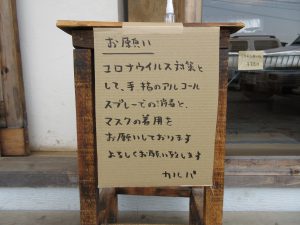 お願い
コロナウイルス対策と
して、手指のアルコール
スプレーでの消毒と、
マスクの着用を
お願いしております
よろしくお願い致します
カルパ